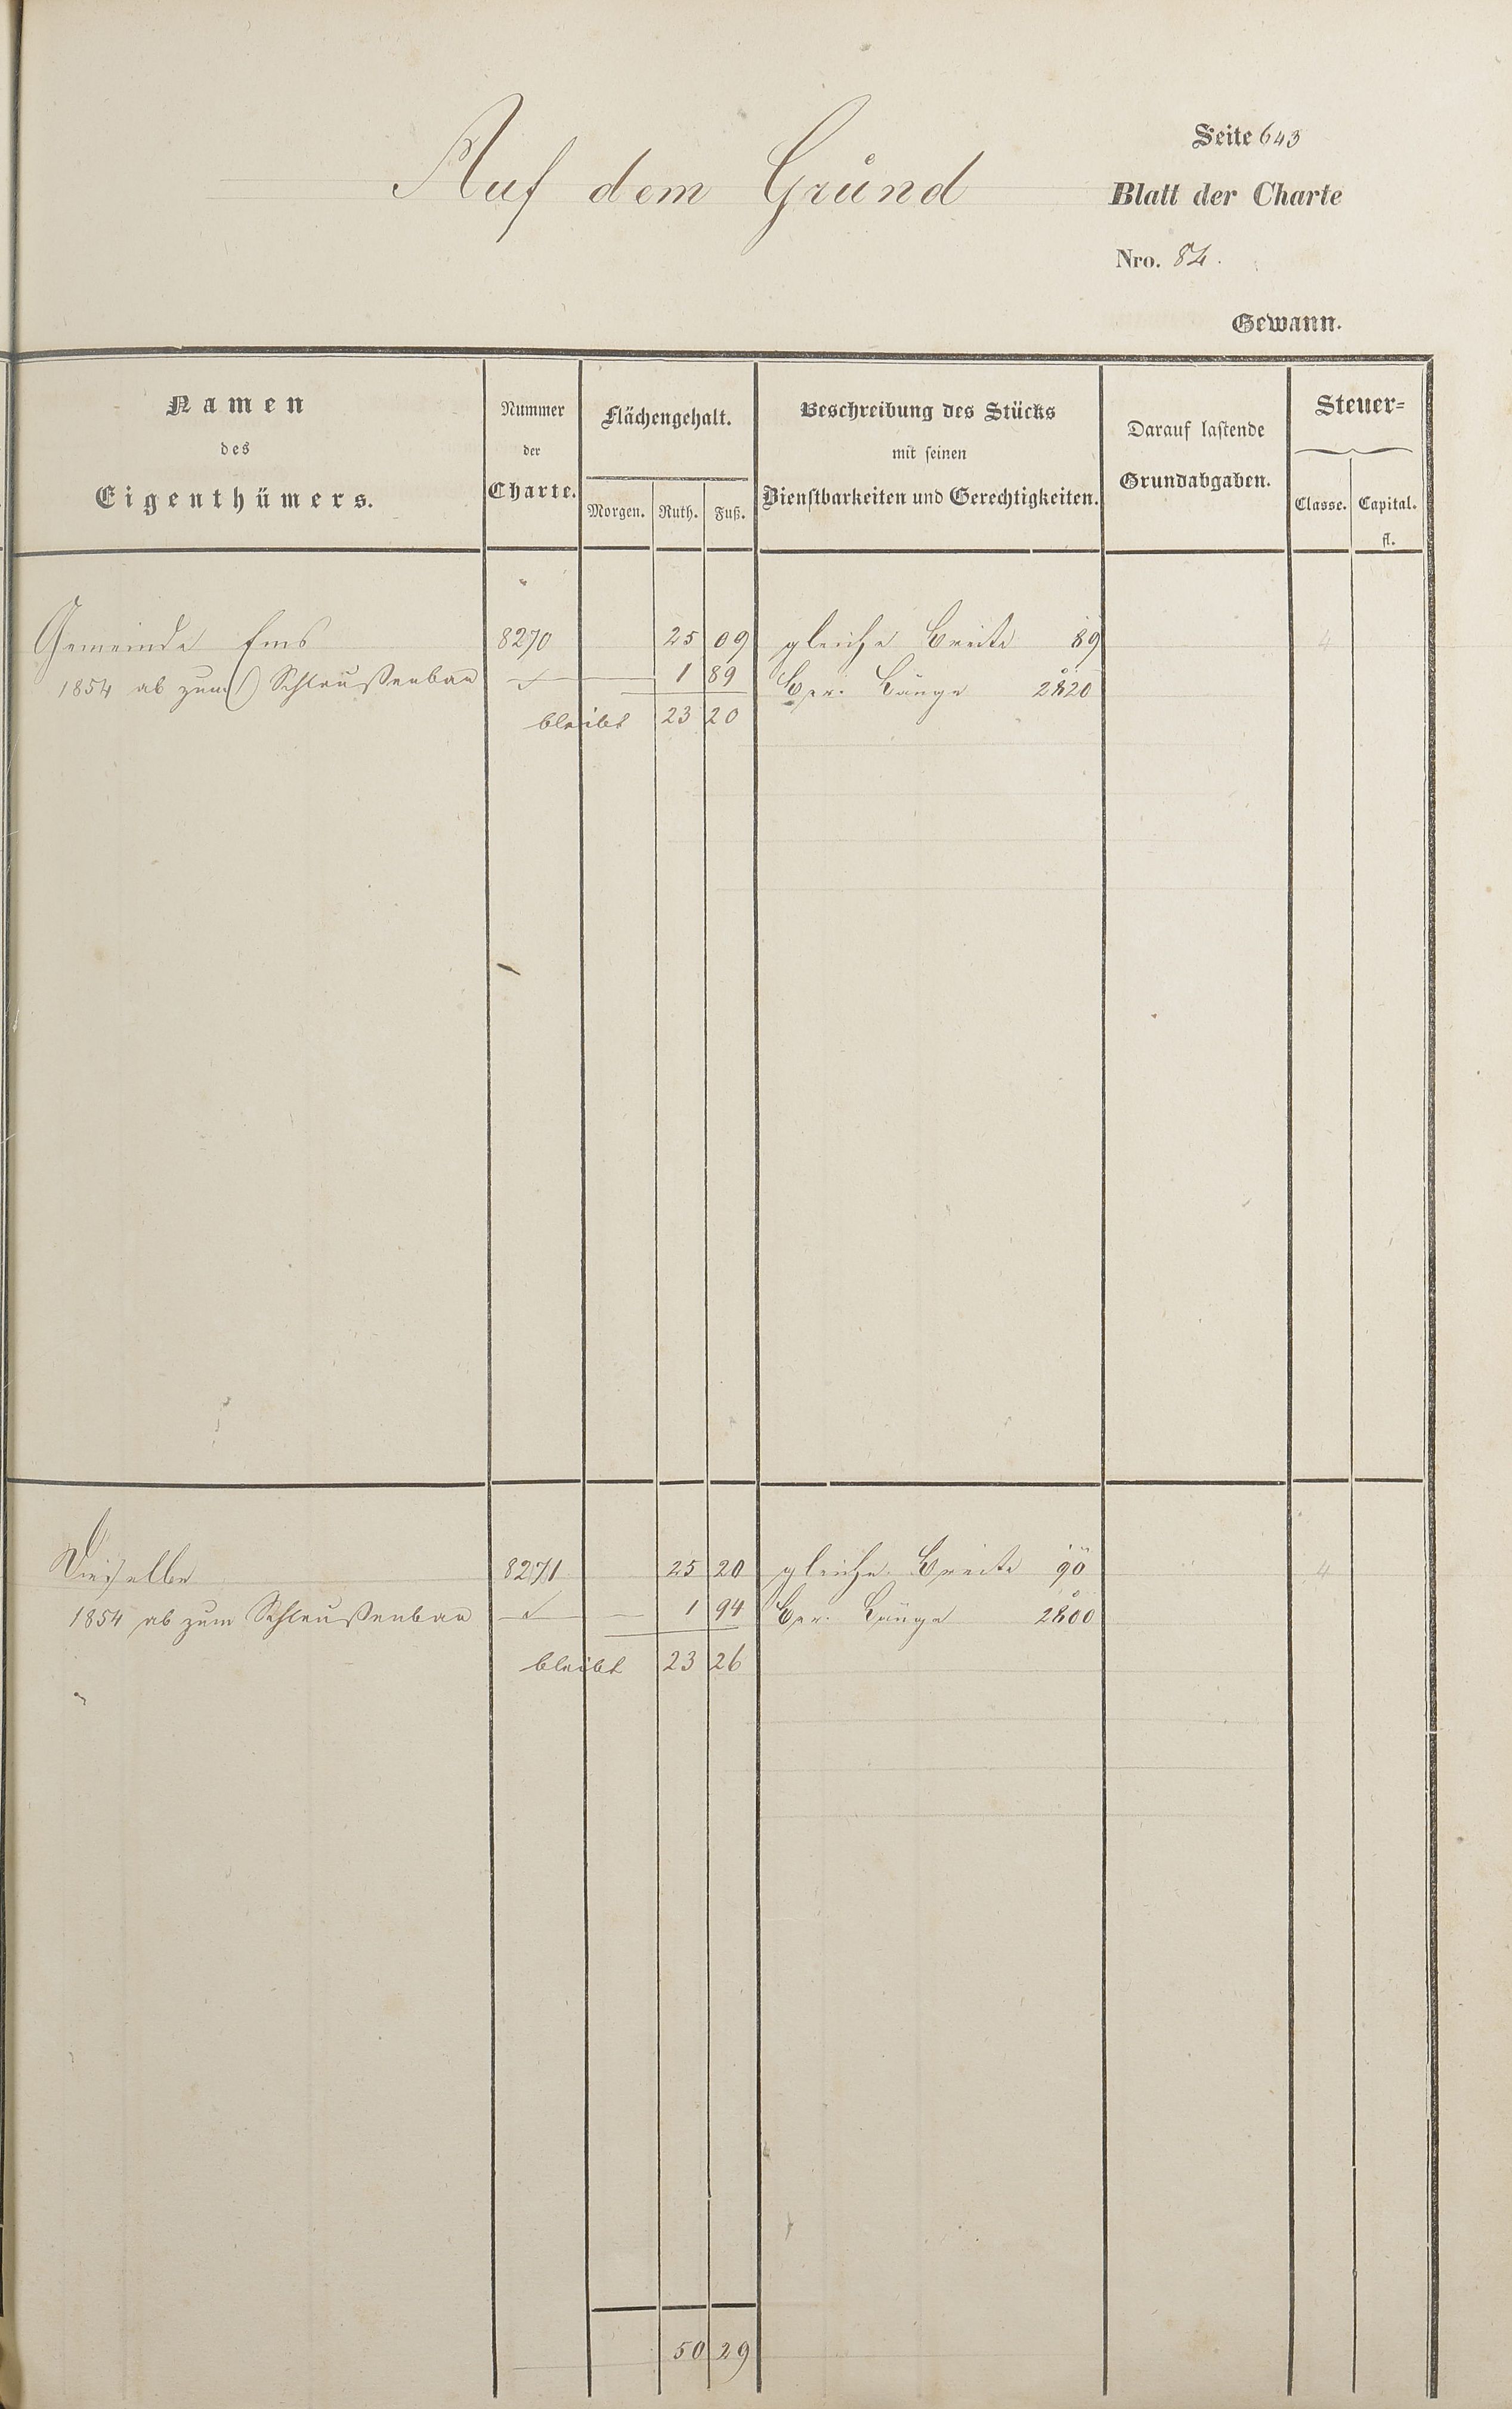 Seite 643
Auf dem Grund
Blatt der Charte
Nro. 84.
Gewann.
Namen des Eigenthümers.
Nummer der Charte.
Flächengehalt.
Morgen. Ruth. Fuß.
Beschreibung des Stücks mit seinen Dienstbarkeiten und Gerechtigkeiten.
Darauf lastende Grundabgaben.
Steuer=
Classe. Capital.
fl.
Gemeinde Ems 8270 25 09 gleiche Breite 89 4
1854 ab zum Schleußenbau 1 89 Ber. Länge 2820
bleibt 23 20
Dieselbe 8271 25 20 gleiche Breite 90 4
1854 ab zum Schleußenbau 1 94 Ber. Länge 2800
bleibt 23 26
50 29